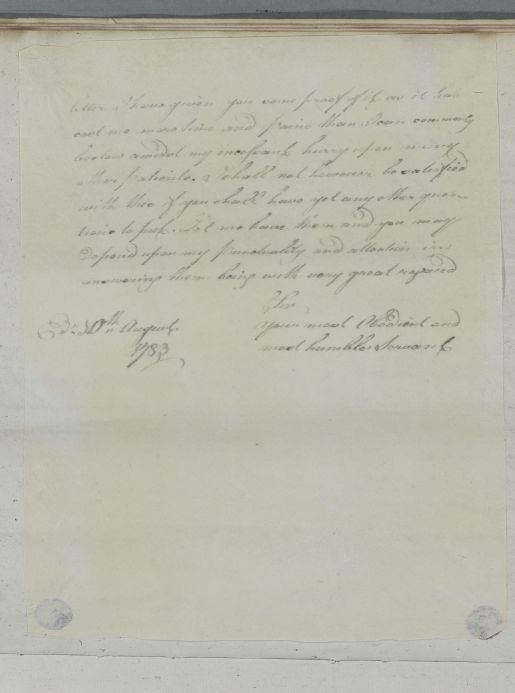 letter I have given you some proof of it as it has
cost me more time and pains than I can commonly
bestow amidst my incessant hurry upon many
other Patients. I shall not however be satisfied
with this if you shall have yet any other ques-
tions to put. Let me have them and you may
Depend upon my Punctuality and attention in
answering them being with very great regard
Sir
30th August Your most Obedient and
1783 most humble Servant